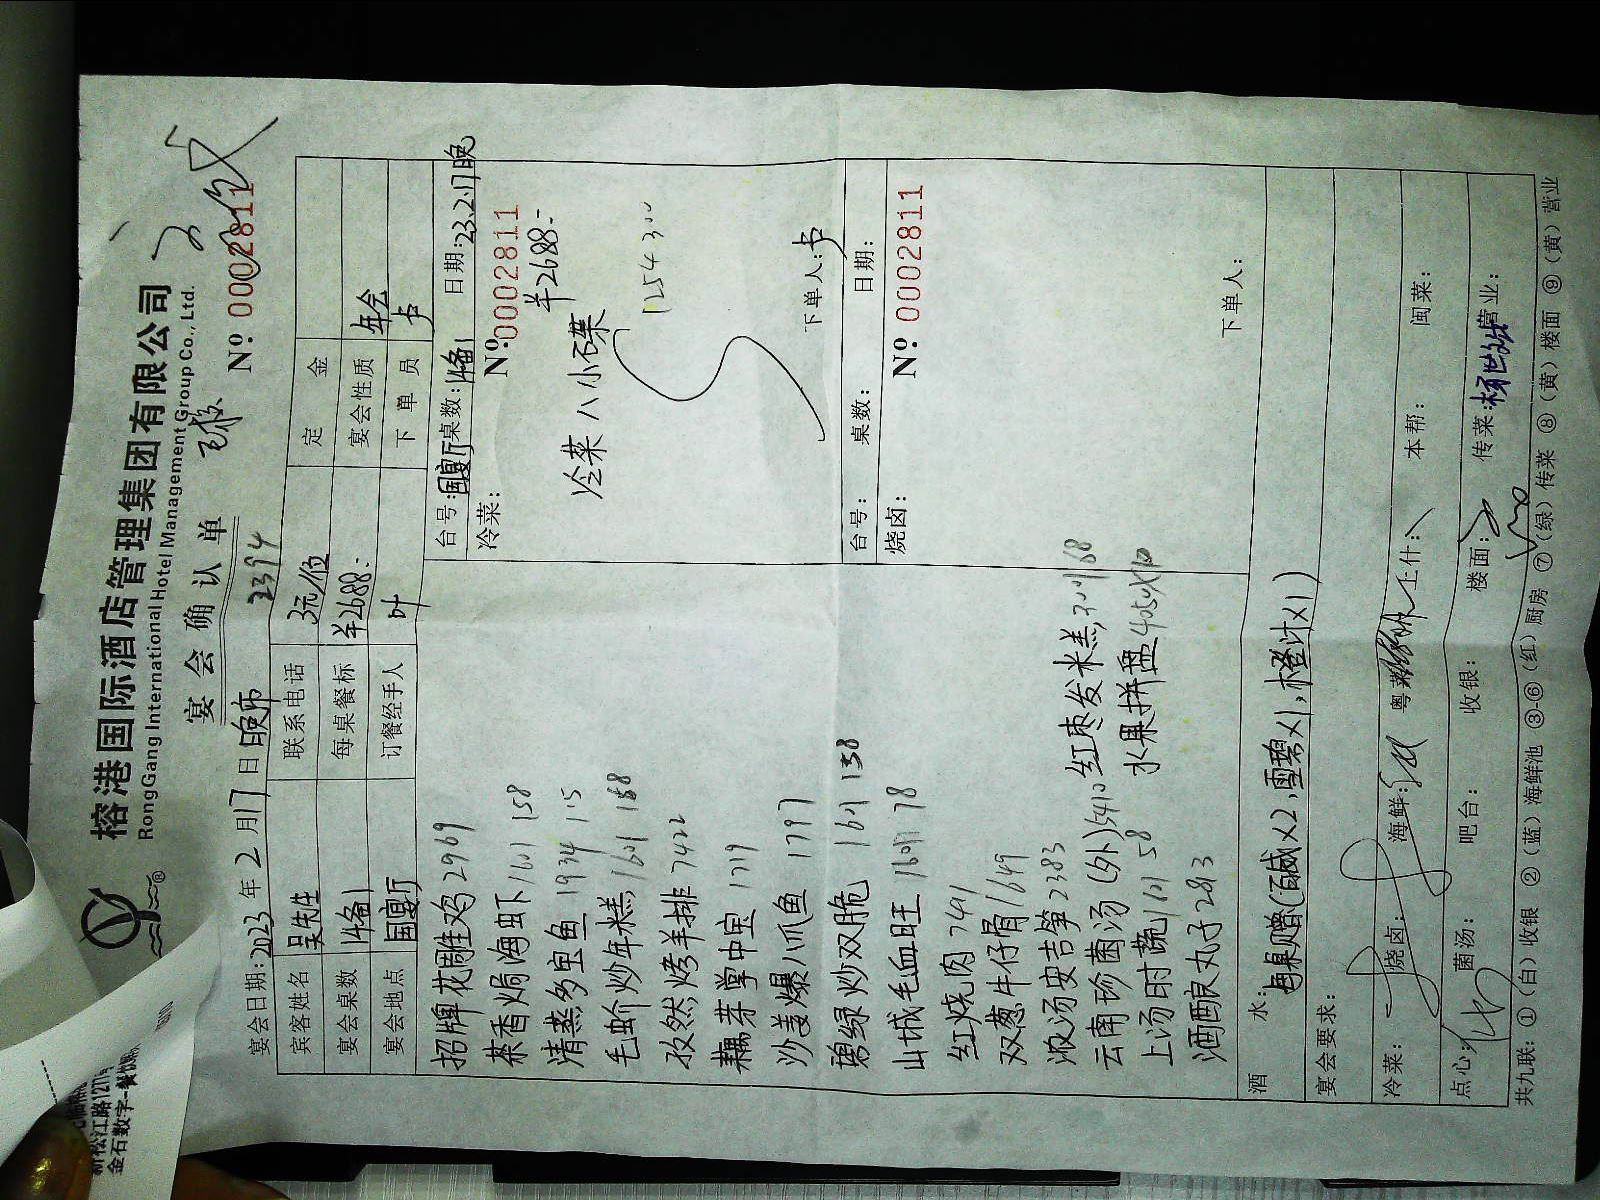 榕港国际酒店管理集团有限公司
RongGang International Hotel Management Group Co., Ltd.
宴会确认单
2394
Nº 0002811
宴会日期:2023年2月17日晚市
宾客姓名 吴先生 联系电话 3元/位 定金
宴会桌数 14备1 每桌餐标 ¥2688:- 宴会性质 年会
宴会地点 国宴厅 订餐经手人 叶 下单员 卢
招牌花雕鸡 2969
茶香焗海虾 1601 158
清蒸多宝鱼 1934 15
毛蚧炒年糕 1601 168
孜然烤羊排 7422
藕芽掌中宝 1719
沙姜爆八爪鱼 1797
碧绿炒双脆 1601 138
山城毛血旺 1601 78
红烧肉 7441
双葱牛仔骨 1649
浓汤安吉笋 2383
云南珍菌汤(外) 5410
上汤时蔬 1601 58
酒酿丸子 2813
红枣发米糕 68
水果拼盘 405×10
台号:国宴厅 桌数:14备1 日期:23.2.17晚
冷菜:
Nº:0002811
¥2688:-
冷菜八小碟
125430
下单人:卢
台号: 桌数: 日期:
烧卤:
Nº: 0002811
下单人:
酒水: 每桌赠(百威×2,雪碧×1,橙汁×1)
宴会要求:
冷菜: 烧卤: 海鲜: 粤菜 上什: 本帮: 闽菜:
点心: 菌汤: 吧台: 收银: 楼面: 传菜: 营业:
共九联: ①(白)收银 ②(蓝)海鲜池 ③-⑥(红)厨房 ⑦(绿)传菜 ⑧(黄)楼面 ⑨(黄)营业
新松江路1277
金石数字-餐饮